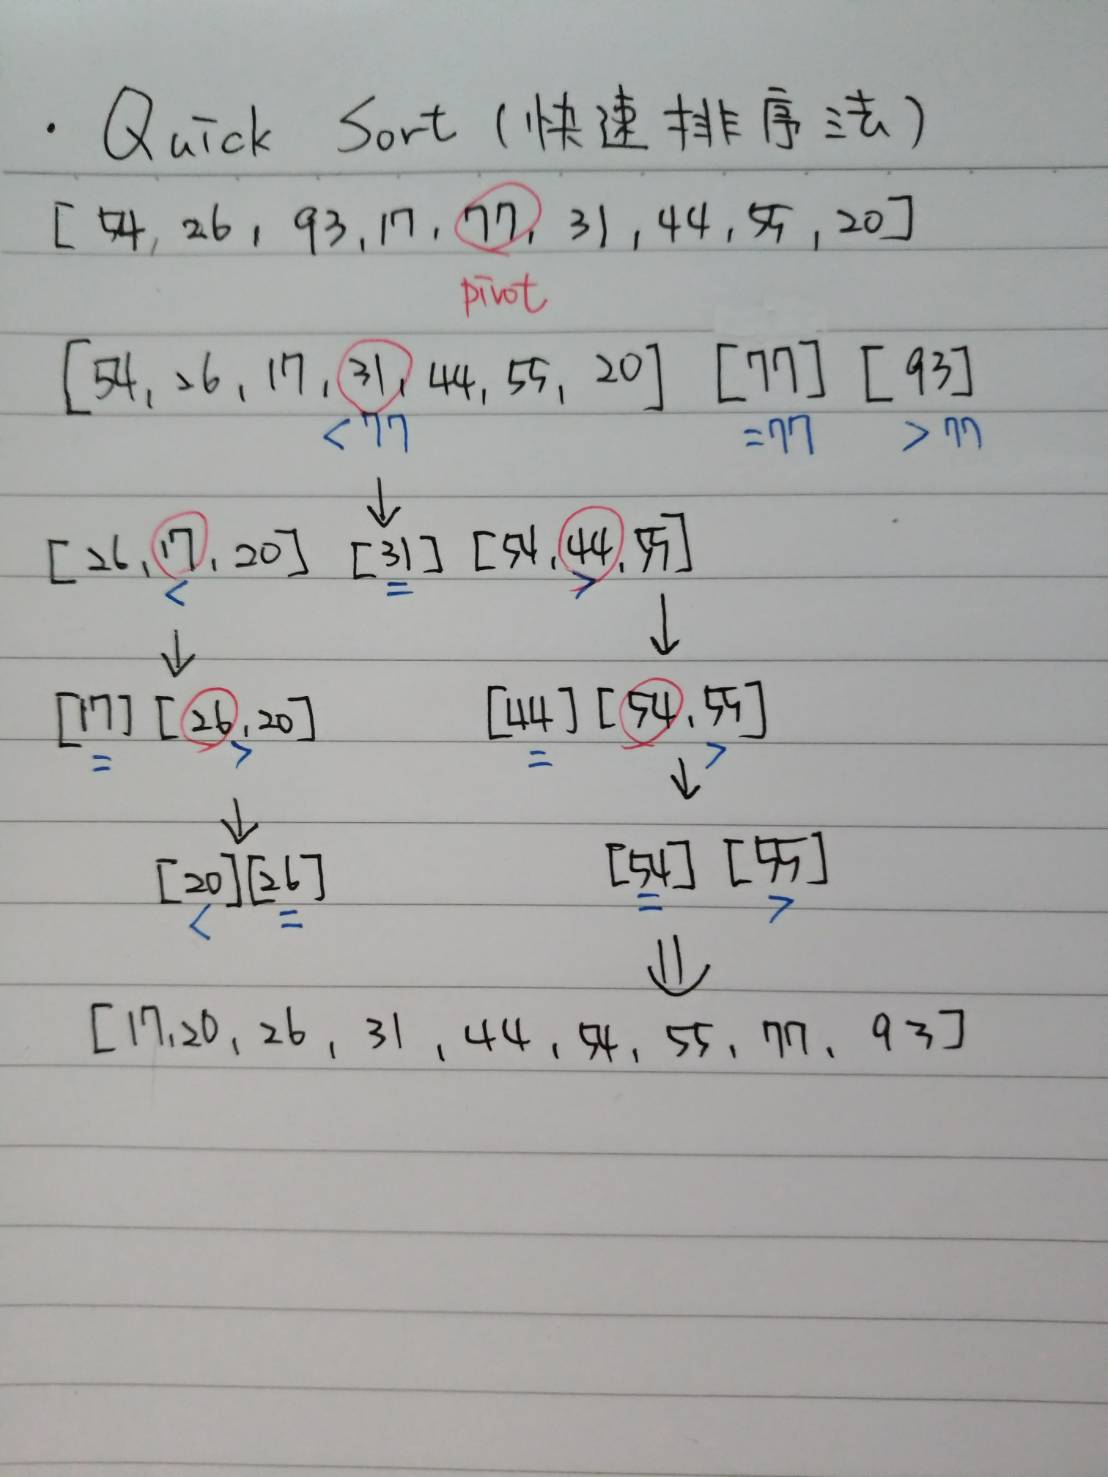 · Quick Sort (快速排序法)
[ 54, 26, 93, 17, 77, 31, 44, 55, 20]
pivot
[54, 26, 17, 31, 44, 55, 20] [77] [93]
<77 =77 >77
↓
[26, 17, 20] [31] [54, 44, 55]
< = >
↓ ↓
[17] [26, 20] [44] [54, 55]
= > = >
↓ ↓
[20][26] [54] [55]
< = = >
⇓
[17, 20, 26, 31, 44, 54, 55, 77, 93]